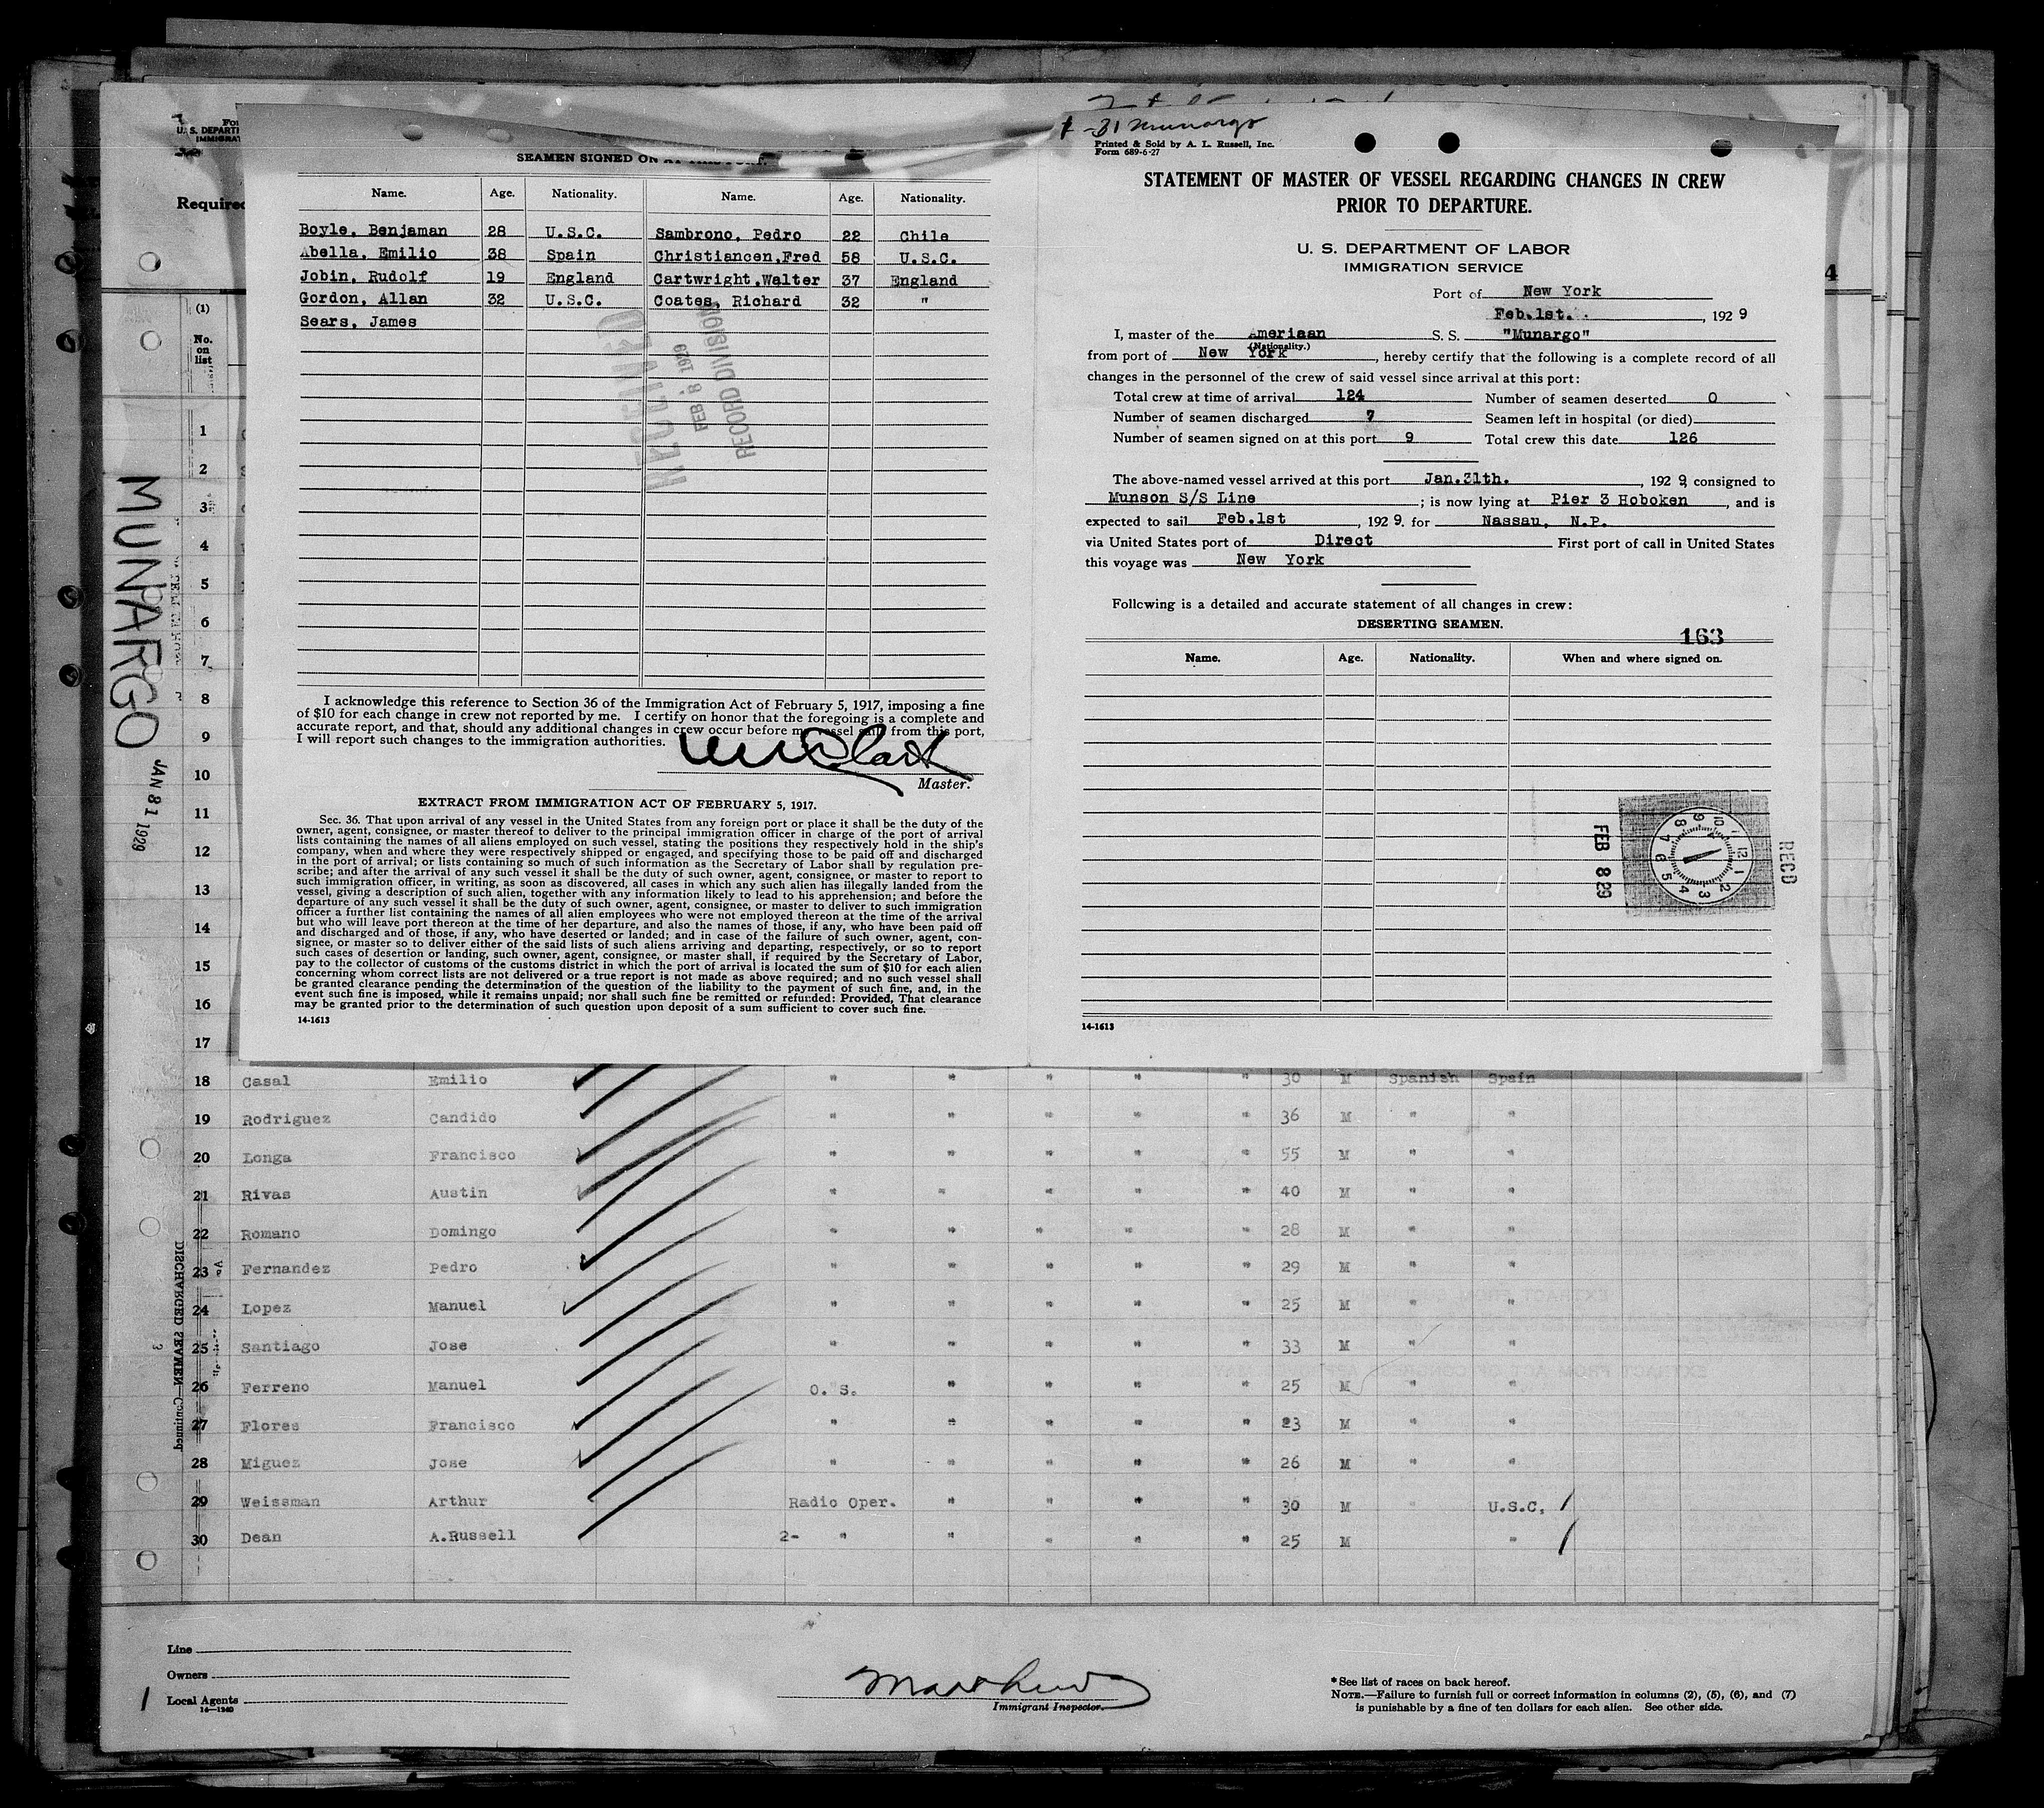 SEAMEN SIGNED ON AT THIS PORT.
Name. Age. Nationality. Name. Age. Nationality.
Boyle, Benjaman 28 U.S.C. Sambrono, Pedro 22 Chile
Abella, Emilio 38 Spain Christiancen,Fred 58 U.S.C.
Jobin, Rudolf 19 England Cartwright,Walter 37 England
Gordon, Allan 32 U.S.C. Coates, Richard 32 "
Sears, James
RECEIVED
FEB 8 1929
RECORD DIVISION
I acknowledge this reference to Section 36 of the Immigration Act of February 5, 1917, imposing a fine
of $10 for each change in crew not reported by me. I certify on honor that the foregoing is a complete and
accurate report, and that, should any additional changes in crew occur before my vessel sails from this port,
I will report such changes to the immigration authorities.
Master.
EXTRACT FROM IMMIGRATION ACT OF FEBRUARY 5, 1917.
Sec. 36. That upon arrival of any vessel in the United States from any foreign port or place it shall be the duty of the
owner, agent, consignee, or master thereof to deliver to the principal immigration officer in charge of the port of arrival
lists containing the names of all aliens employed on such vessel, stating the positions they respectively hold in the ship's
company, when and where they were respectively shipped or engaged, and specifying those to be paid off and discharged
in the port of arrival; or lists containing so much of such information as the Secretary of Labor shall by regulation pre-
scribe; and after the arrival of any such vessel it shall be the duty of such owner, agent, consignee, or master to report to
such immigration officer, in writing, as soon as discovered, all cases in which any such alien has illegally landed from the
vessel, giving a description of such alien, together with any information likely to lead to his apprehension; and before the
departure of any such vessel it shall be the duty of such owner, agent, consignee, or master to deliver to such immigration
officer a further list containing the names of all alien employees who were not employed thereon at the time of the arrival
but who will leave port thereon at the time of her departure, and also the names of those, if any, who have been paid off
and discharged and of those, if any, who have deserted or landed; and in case of the failure of such owner, agent, con-
signee, or master so to deliver either of the said lists of such aliens arriving and departing, respectively, or so to report
such cases of desertion or landing, such owner, agent, consignee, or master shall, if required by the Secretary of Labor,
pay to the collector of customs of the customs district in which the port of arrival is located the sum of $10 for each alien
concerning whom correct lists are not delivered or a true report is not made as above required; and no such vessel shall
be granted clearance pending the determination of the question of the liability to the payment of such fine, and, in the
event such fine is imposed, while it remains unpaid; nor shall such fine be remitted or refunded: Provided, That clearance
may be granted prior to the determination of such question upon deposit of a sum sufficient to cover such fine.
14-1613
-31 Munargo
Printed & Sold by A. L. Russell, Inc.
Form 689-6-27
STATEMENT OF MASTER OF VESSEL REGARDING CHANGES IN CREW
PRIOR TO DEPARTURE.
U. S. DEPARTMENT OF LABOR
IMMIGRATION SERVICE
Port of New York
Feb.1st. , 1929
I, master of the Ameriaan S. S. "Munargo"
(Nationality.)
from port of New York , hereby certify that the following is a complete record of all
changes in the personnel of the crew of said vessel since arrival at this port:
Total crew at time of arrival 124 Number of seamen deserted 0
Number of seamen discharged 7 Seamen left in hospital (or died)
Number of seamen signed on at this port 9 Total crew this date 126
The above-named vessel arrived at this port Jan.31th. , 1929, consigned to
Munson S/S Line ; is now lying at Pier 3 Hoboken , and is
expected to sail Feb.1st , 1929. for Nassau, N.P.
via United States port of Direct First port of call in United States
this voyage was New York
Following is a detailed and accurate statement of all changes in crew:
DESERTING SEAMEN.
163
Name. Age. Nationality. When and where signed on.
FEB 8 29
12 1 2 3 4 5 6 7 8 9 10
RECD
14-1613
U. S. DEPARTI
IMMIGRAT
Required
4
(1)
No.
on
list
MUNARGO
JAN 31 1929
1
2
3
4
5
6
7
8
9
10
11
12
13
14
15
16
17
18 Casal Emilio " " " " " 30 M Spanish Spain
19 Rodriguez Candido " " " " " 36 M " "
20 Longa Francisco " " " " " 55 M " "
21 Rivas Austin " " " " " 40 M " "
22 Romano Domingo " " " " " 28 M " "
23 Fernandez Pedro " " " " " 29 M " "
24 Lopez Manuel " " " " " 25 M " "
25 Santiago Jose " " " " " 33 M " "
26 Ferreno Manuel O. S. " " " " 25 M " "
27 Flores Francisco " " " " " 23 M " "
28 Miguez Jose " " " " " 26 M " "
29 Weissman Arthur Radio Oper. " " " " 30 M " U.S.C.
30 Dean A.Russell 2- " " " " " 25 M "
DISCHARGED SEAMEN—Continued
Line
Owners
Local Agents
14—1240
Immigrant Inspector.
*See list of races on back hereof.
NOTE.—Failure to furnish full or correct information in columns (2), (5), (6), and (7)
is punishable by a fine of ten dollars for each alien. See other side.